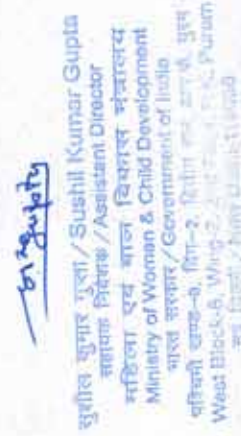 सुशील कुमार गुप्ता/Sushil Kumar Gupta
सहायक निदेशक/Assistant Director
महिला एवं बाल विकास मंत्रालय
Ministry of Woman & Child Development
भारत सरकार/Government of India
पश्चिमी खण्ड-8, विंग-2,
West Block-8, Wing-2, Puram
नई दिल्ली/New Delhi